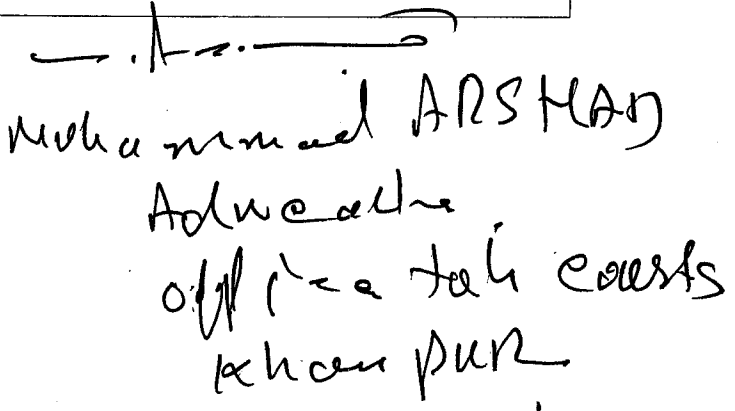 Mohammad ARSHAD
Advocate
Office tah courts
Khan pur